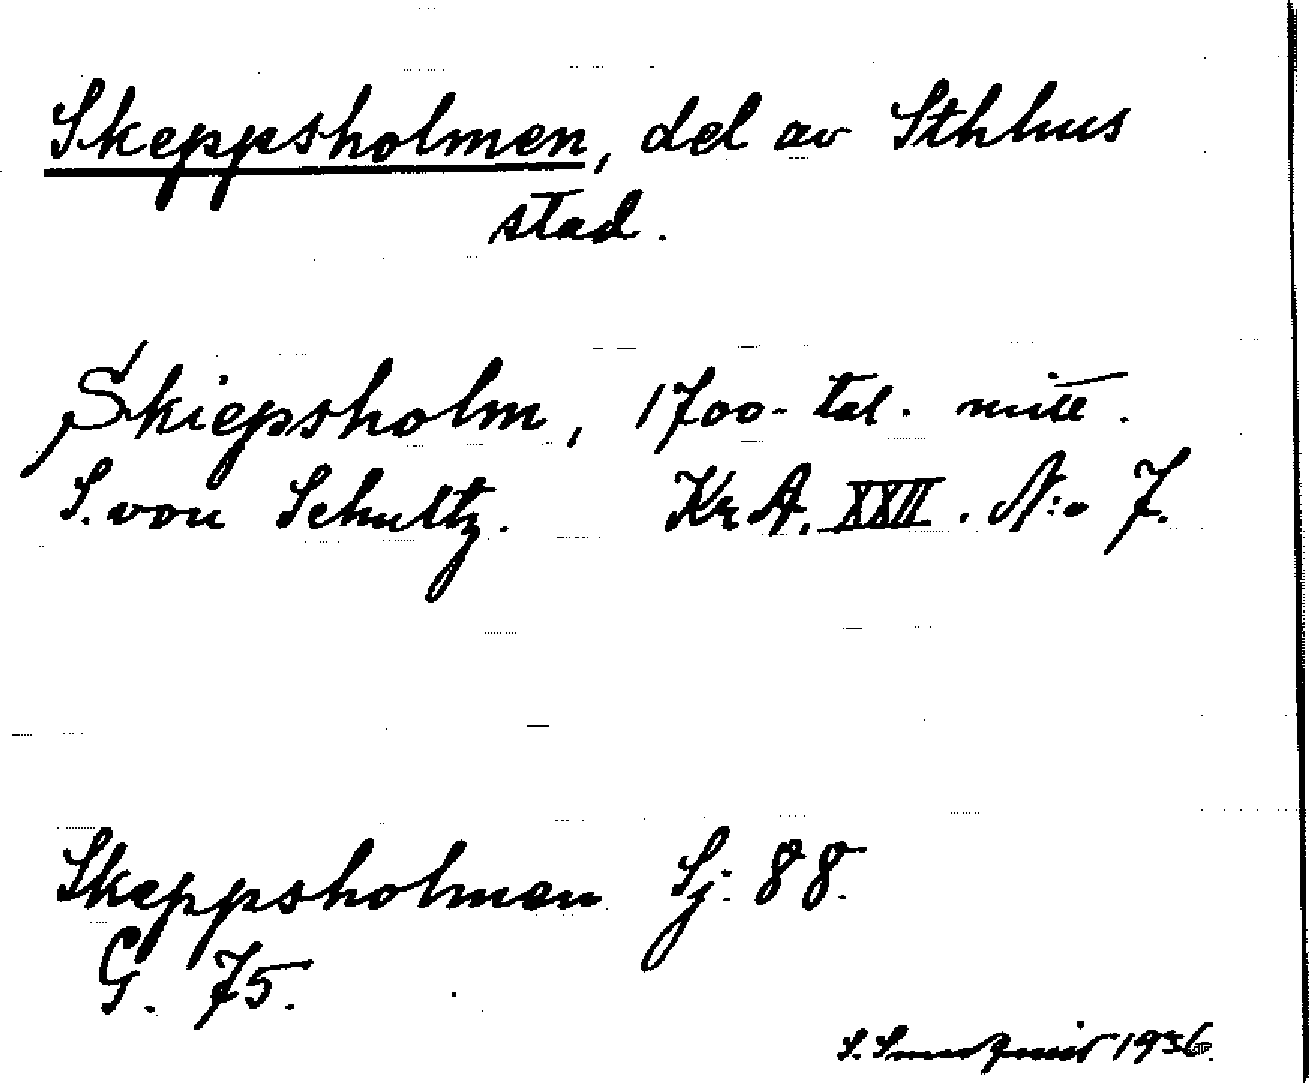 Skeppsholmen, del av Sthlms
stad.
Skiepsholm, 1700-tal. mitt.
S. von Schultz. Kr.A. XXII. N:o 7.
Skeppsholmen Sj: 88.
G. 75.
1936